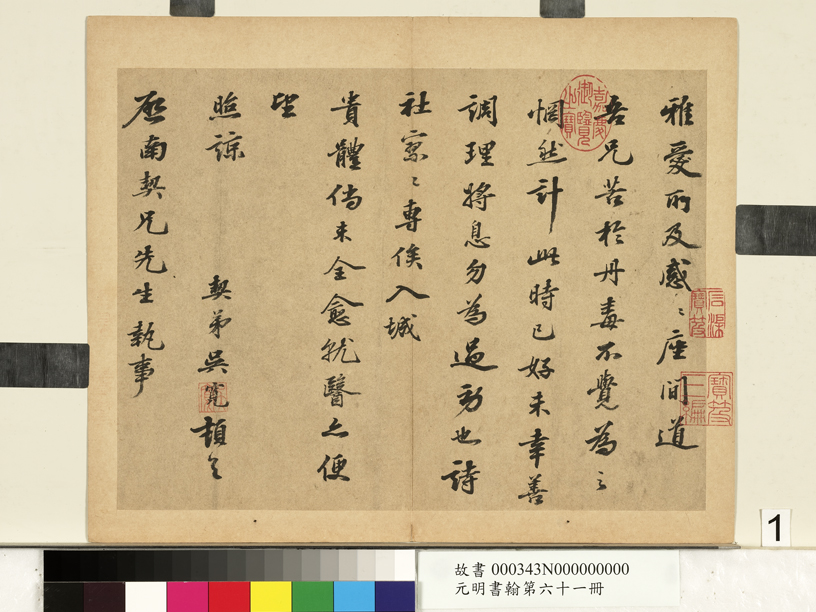 雅愛所及感〻座間道
吾兄苦於丹毒不覺為之
惘然計此時已好未幸善
調理將息勿為過勞也詩
社寥〻專俟入城
貴體倘未全愈就醫亦便
望
照諒
契弟吳寬頓首
啟南契兄先生執事
嘉慶御覽之寶
寶笈三編
1
故書 000343N000000000
元明書翰第六十一冊